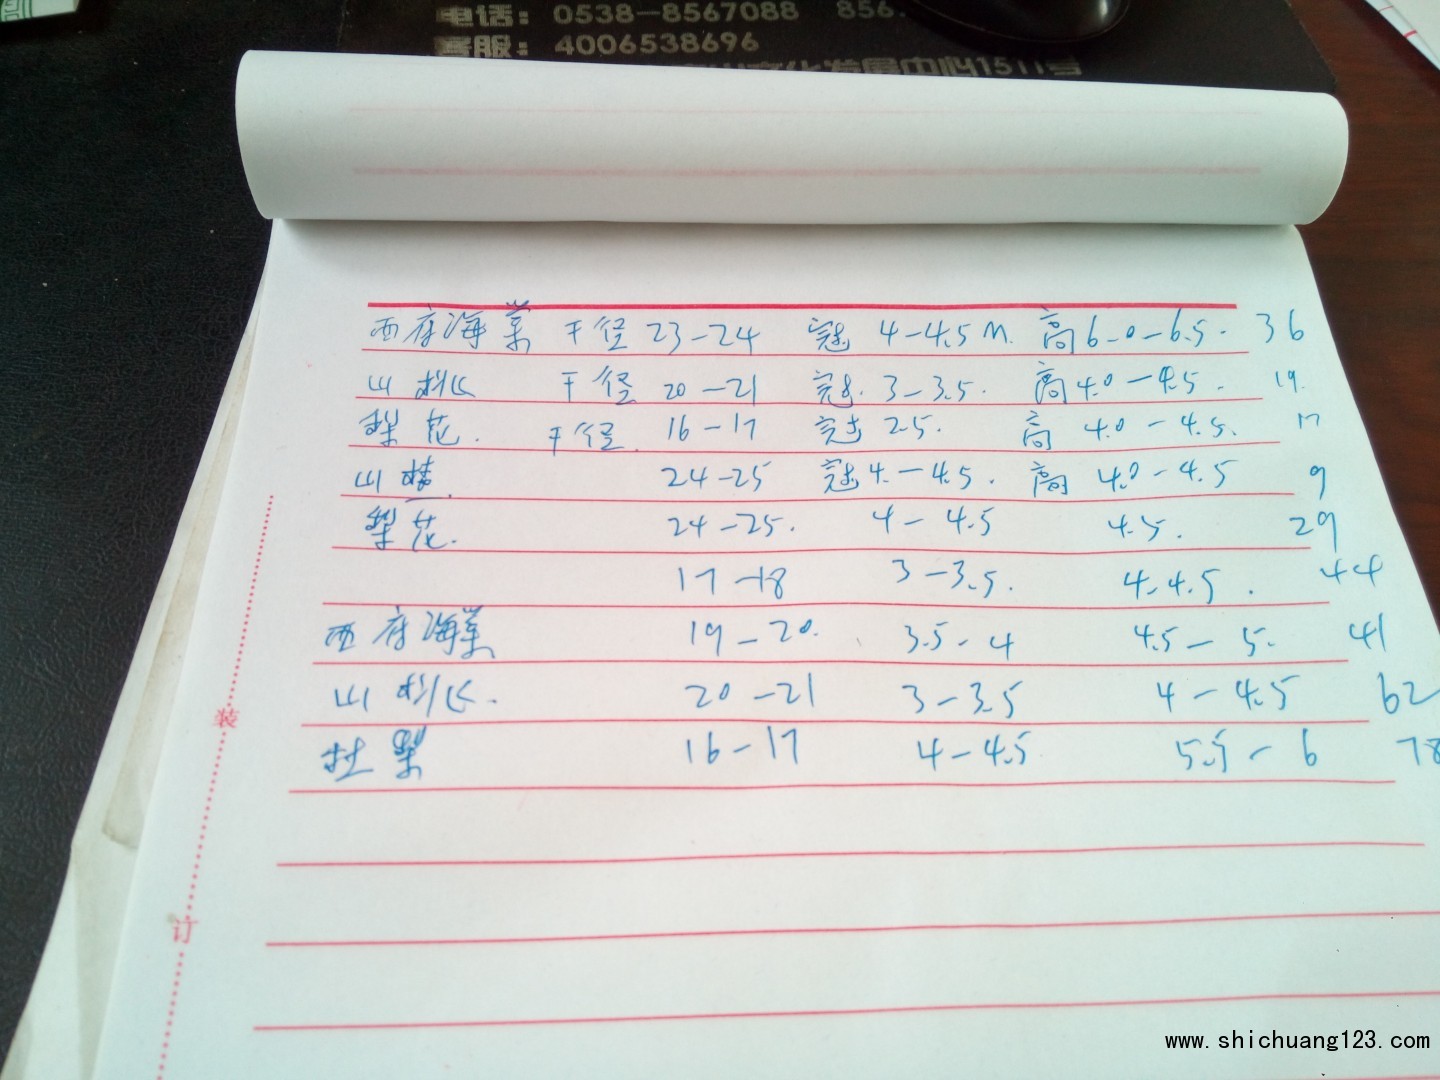 电话：0538-8567088 856
客服：4006538696
发展中心1511号
西府海棠 干径 23-24 冠 4-4.5m. 高6.0-6.5. 36
山桃 干径 20-21 冠. 3-3.5. 高4.0-4.5. 19.
梨花. 干径. 16-17 冠 2.5. 高 4.0-4.5. 17
山楂 24-25 冠4.-4.5. 高 4.0-4.5 9
梨花. 24-25. 4-4.5 4.5. 29
17-18 3-3.5. 4.4.5. 44
西府海棠 19-20. 3.5-4 4.5-5. 41
山桃. 20-21 3-3.5 4-4.5 62
16-17 4-4.5 5.5-6 78
装
订
www.shichuang123.com